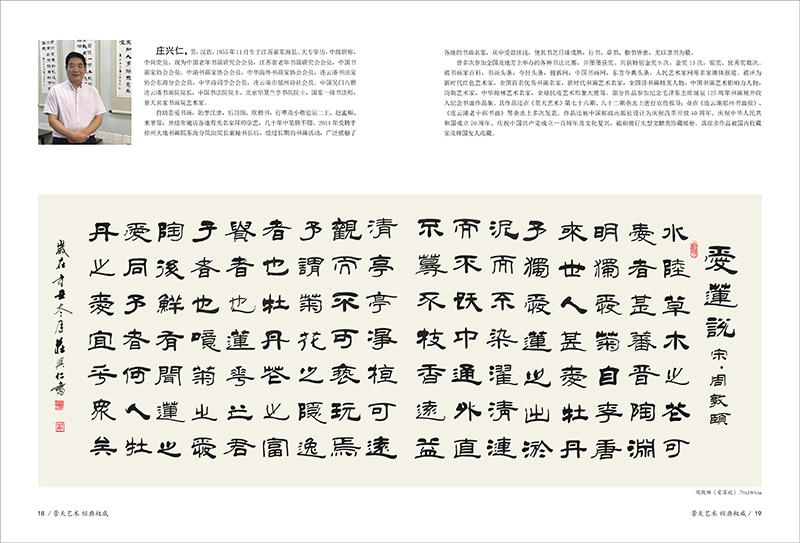 庄兴仁，男，汉族，1955年11月生于江苏省东海县。大专学历，中级职称，
中共党员。现为中国老年书画研究会会员，江苏省老年书画研究会会员，中国书
画家协会会员，中港书画家协会会员，中华海外书画家协会会员，连云港书法家
协会会员，中华诗词学会会员，连云港市郁州诗社社员，中国吴门六雅
连云港书画院院长，中国书法院院士，北京华夏兰亭书画院院士，国家一级书法师，
景天名家书画院艺术家。
自幼喜爱书画，始学汉隶，后习颜、欧楷书，行草及小楷追宗二王、赵孟頫、
米芾等，并经常遍访各地有关名家拜师学艺，几十年中笔耕不辍。2014年受聘于
徐州大地书画院东海分院副院长兼秘书长后，经过长期的书画活动，广泛接触了
各地的书画名家，从中受益匪浅，使其书艺日臻成熟，行书、草书、楷书皆善，尤以隶书为最。
曾多次参加全国及地方上举办的各种书法比赛，并屡屡获奖。共获特别金奖9次，金奖13次，银奖、优秀奖数次。
被书画家百科，书画头条，今日头条，搜狐网，中国书画网，东方今典头条，人民艺术家网等多家媒体报道。被评为
新时代红色艺术家，全国百名优秀书画名家，新时代书画艺术名家，全国诗书画精英人物，中国书画艺术影响力人物，
功勋艺术家，中华翰林艺术名家，全球抗疫艺术形象大使等。部分作品参加纪念毛泽东主席诞辰125周年书画展并收
入纪念书画作品集。其作品还在《景天艺术》第七十六期、八十二期杂志上进行宣传报导；并在《连云港郁州书画报》、
《连云港老干部书画》等杂志上多次发表。作品还被中国邮政出版社设计为庆祝改革开放40周年、庆祝中华人民共
和国成立70周年、庆祝中国共产党成立一百周年及文化复兴、砥砺前行大型文献类珍藏邮册。其很多作品被国内收藏
家及韩国友人收藏。
愛蓮說 宋·周敦頤
水陸草木之花可
愛者甚蕃晉陶淵
明獨愛菊自李唐
來世人甚愛牡丹
予獨愛蓮之出淤
泥而不染濯清漣
而不妖中通外直
不蔓不枝香遠益
清亭亭淨植可遠
觀而不可褻玩焉
予謂菊花之隱逸
者也牡丹花之富
貴者也蓮華之君
子者也噫菊之愛
陶後鮮有聞蓮之
愛同予者何人牡
丹之愛宜乎眾矣
歲在辛丑冬月莊興仁書
周敦颐《爱莲说》 70x180cm
18 / 景天艺术 经典权威
景天艺术 经典权威 / 19